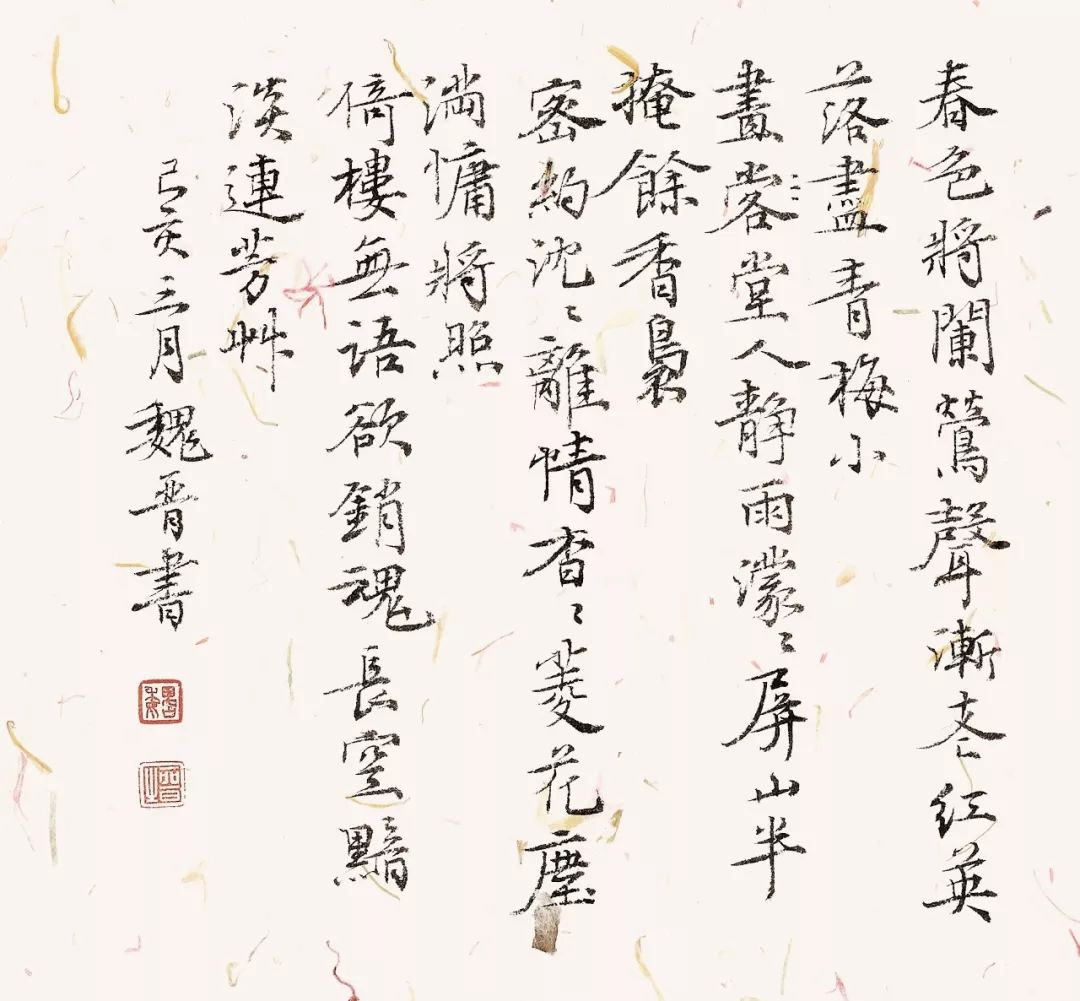 春色將闌鶯聲漸老紅英
落盡青梅小
畫堂人靜雨濛〻屏山半
掩餘香裊
密約沈〻離情杳〻菱花塵
滿慵將照
倚樓無語欲銷魂長空黯
淡連芳艸
己亥三月魏晉書